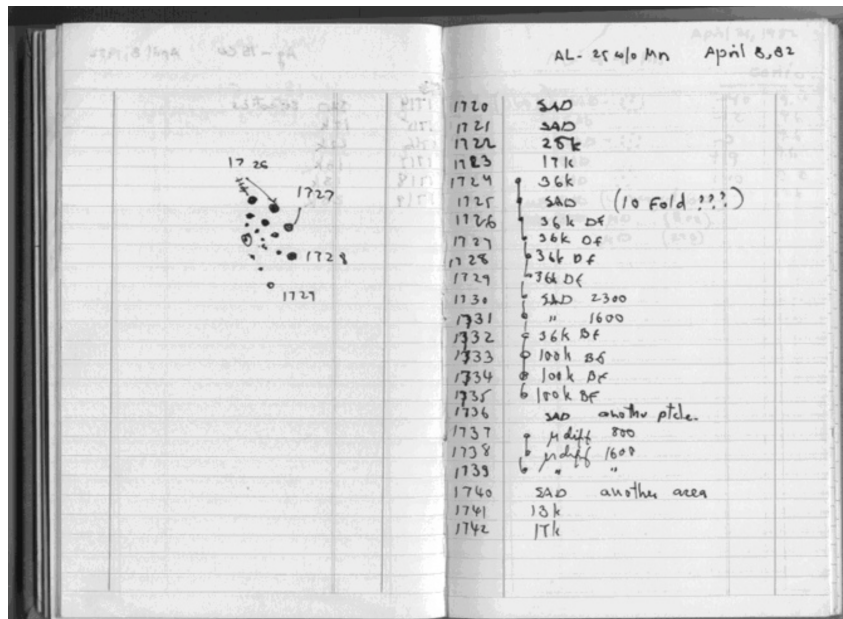 1726
1727
1728
1729
AL- 25 w/o Mn April 8, 82
1720 SAD
1721 SAD
1722 25k
1723 17k
1724 36k
1725 SAD (10 Fold ???)
1726 36k Df
1727 36k Df
1728 36k Df
1729 36k Df
1730 SAD 2300
1731 " 1600
1732 36k Bf
1733 100k Bf
1734 100k Bf
1735 100k Bf
1736 SAD another ptcle.
1737 μdiff 800
1738 μdiff 1600
1739 " "
1740 SAD another area
1741 13k
1742 17k